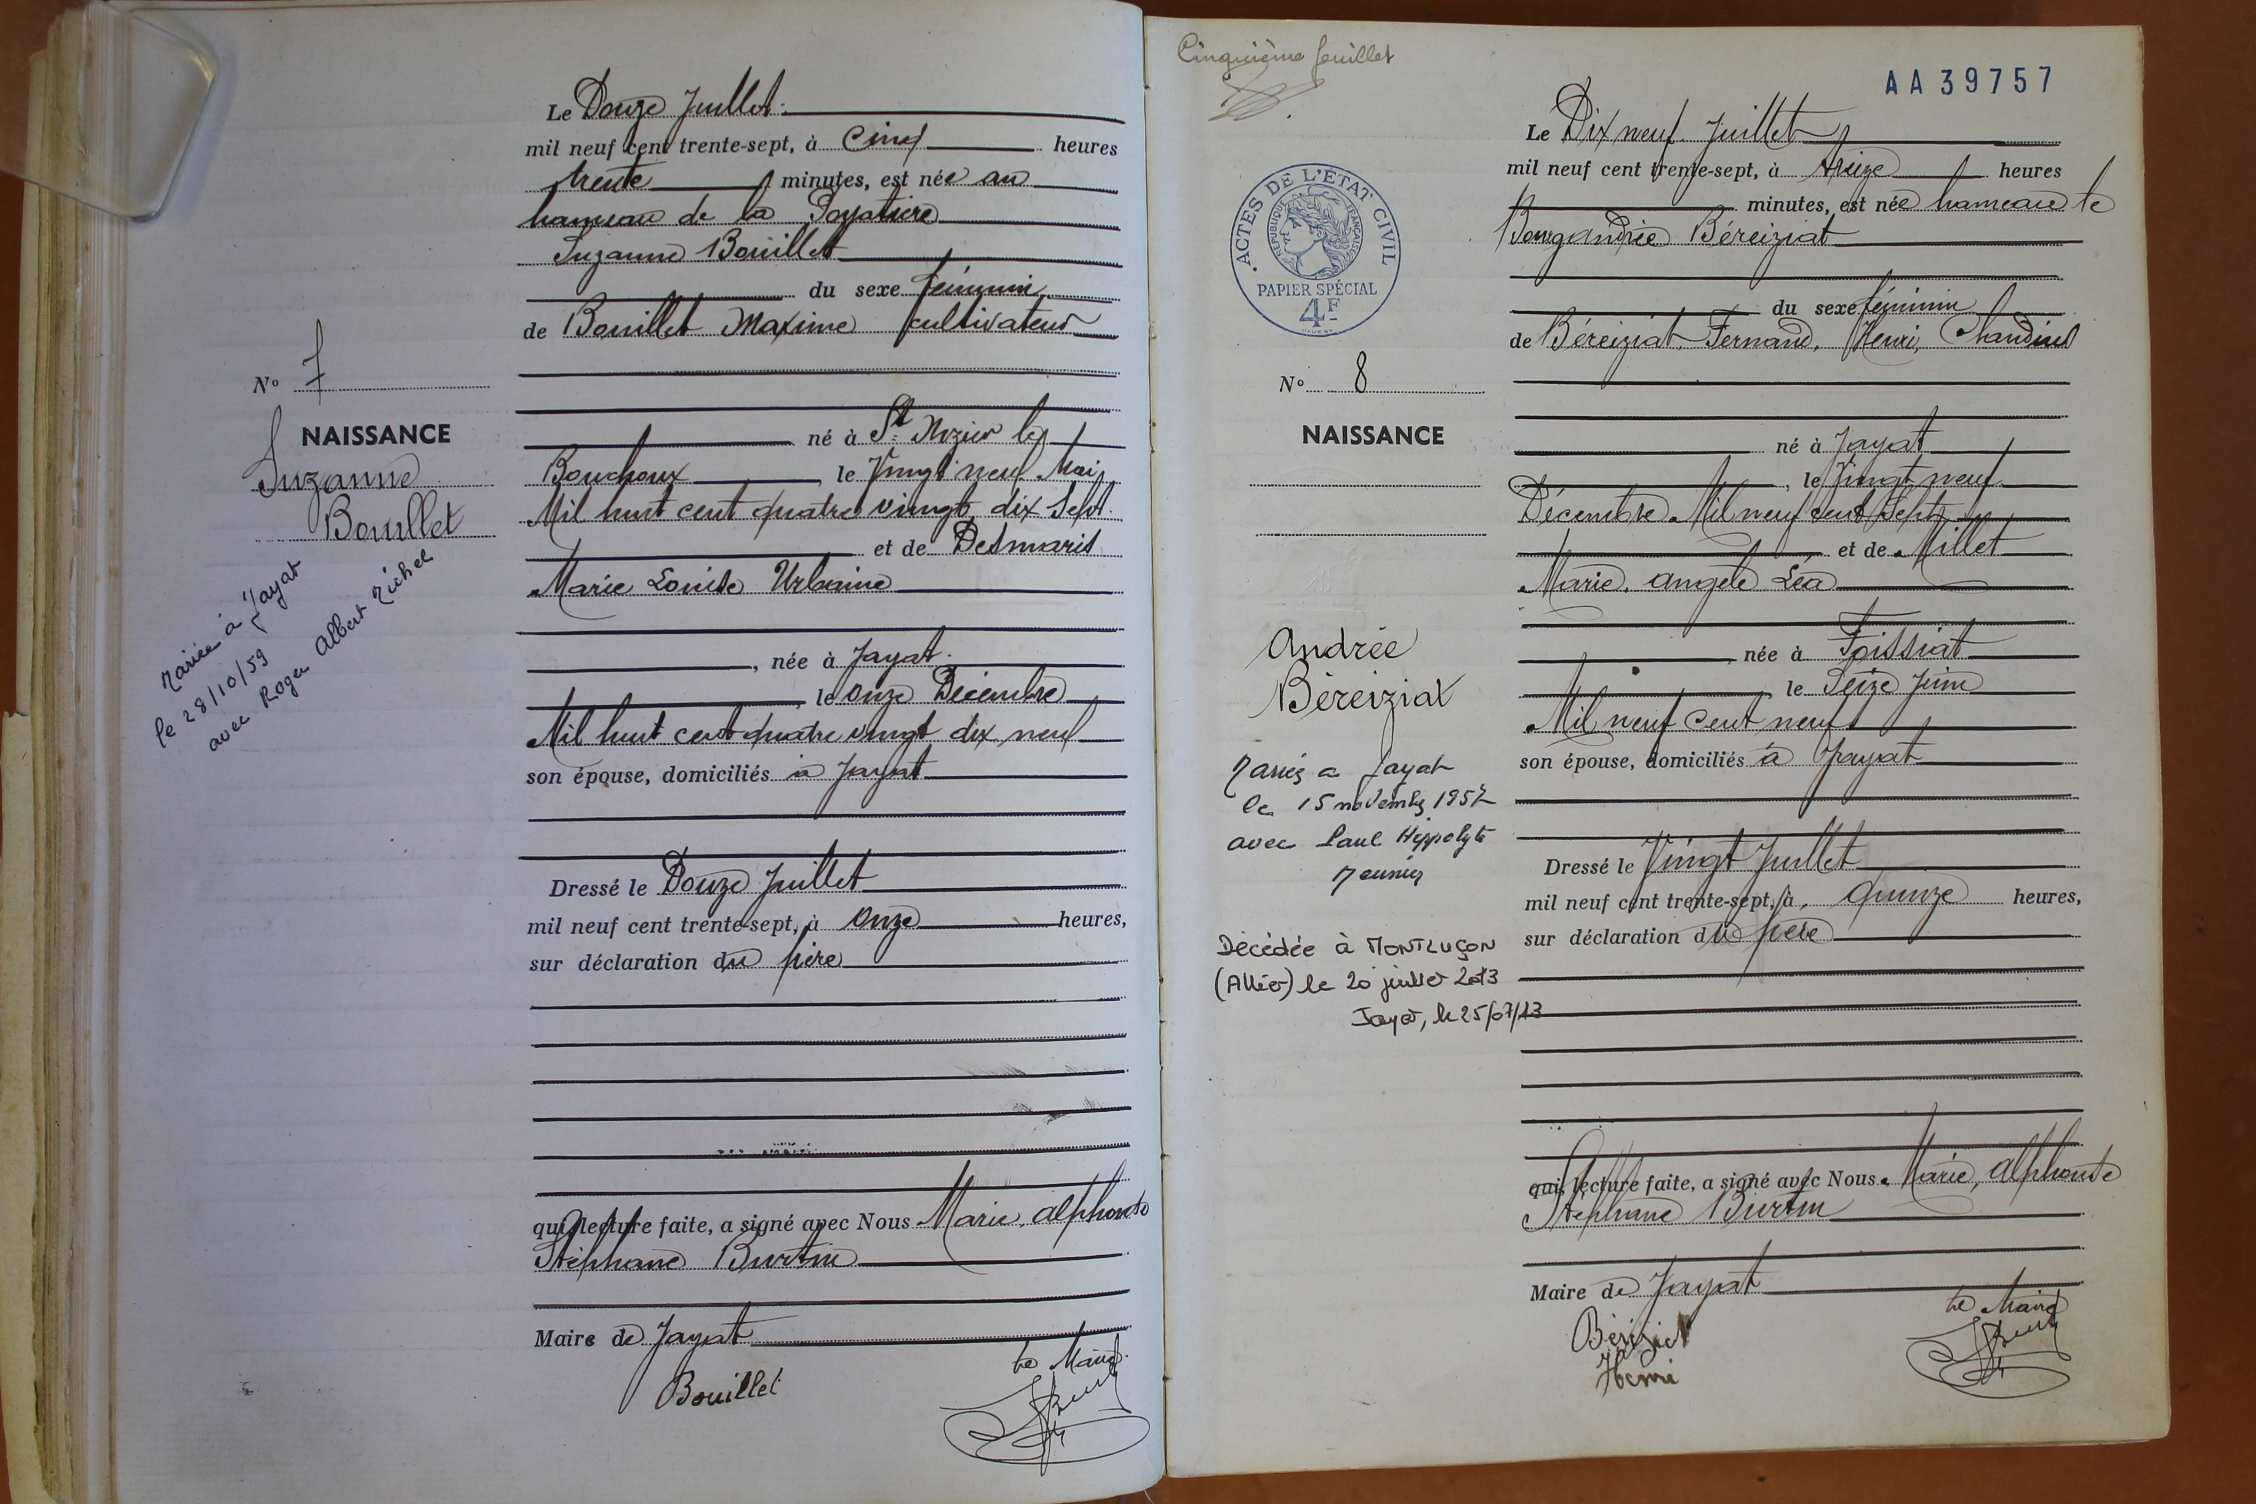 Le Douze Juillet
mil neuf cent trente-sept, à Cinq heures
trente minutes, est née au
hameau de la
Suzanne Bouillet
du sexe féminin
de Bouillet Maxime cultivateur
No 7
NAISSANCE
Suzanne
Bouillet
Mariée à Jayat
le 28/10/59
avec Roger Albert Michel
né à St. les
Bouchoux, le Vingt neuf Mai
Mil huit cent quatre vingt dix Sept.
et de Desmaris
Marie Louise Urbaine
, née à Jayat.
, le onze Décembre
Mil huit cent quatre vingt dix neuf
son épouse, domiciliés à Jayat
Dressé le Douze Juillet
mil neuf cent trente-sept, à onze heures,
sur déclaration du père
qui, lecture faite, a signé avec Nous Marie, Alphonse
Stéphane Burtin
Maire de Jayat
Bouillet
Le Maire.
Cinquième feuillet
AA 39757
ACTES DE L'ÉTAT CIVIL
RÉPUBLIQUE FRANÇAISE
PAPIER SPÉCIAL
4F
Le Dix neuf Juillet
mil neuf cent trente-sept, à treize heures
minutes, est née hameau le
Bourg Andrée Béreiziat
du sexe féminin
de Béreiziat, Fernand, Henri, Claudius
No 8
NAISSANCE
né à Jayat
, le Vingt neuf
Décembre Mil neuf cent Sept
et de Millet
Marie, Angèle Léa
, née à Foissiat
le Seize Juin
Mil neuf cent neuf
son épouse, domiciliés à Jayat
Andrée
Béreiziat
Mariée a Jayat
le 15 novembre 1957
avec Paul Hippolyte
Meunier
Décédée à MONTLUÇON
(Allier) le 20 juillet 2013
Jayat, le 25/07/13
Dressé le Vingt Juillet
mil neuf cent trente-sept, à quinze heures,
sur déclaration du père
qui, lecture faite, a signé avec Nous Marie, Alphonse
Stéphane Burtin
Maire de Jayat
Béréziat
Henri
Le Maire